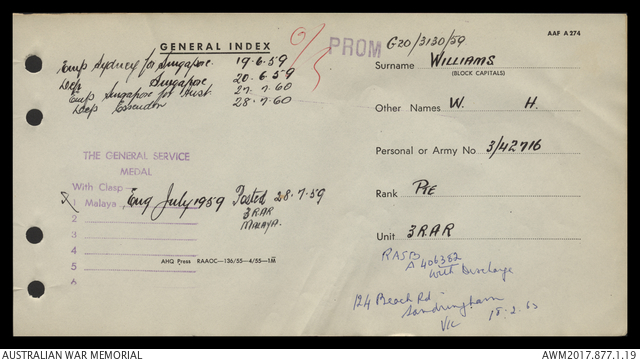 GENERAL INDEX
AAF A 274
PROM
G20/3130/59
Emp Sydney for Singapore. 19.6.59
Dep Singapore 20.6.59
Emp Singapore for Aust. 27.7.60
Dep Essendon 28.7.60
Surname WILLIAMS
(BLOCK CAPITALS)
Other Names W. H.
Personal or Army No. 3/42716
Rank PTE
Unit 3RAR
THE GENERAL SERVICE
MEDAL
With Clasp
1 Malaya July 1959 Posted 28.7.59
3RAR
MALAYA.
2
3
4
5
6
AHQ Press RAAOC—136/55—4/55—1M
RASB
A 406382
with Discharge
124 Beach Rd
Sandringham
Vic 18.2.63
AUSTRALIAN WAR MEMORIAL
AWM2017.877.1.19